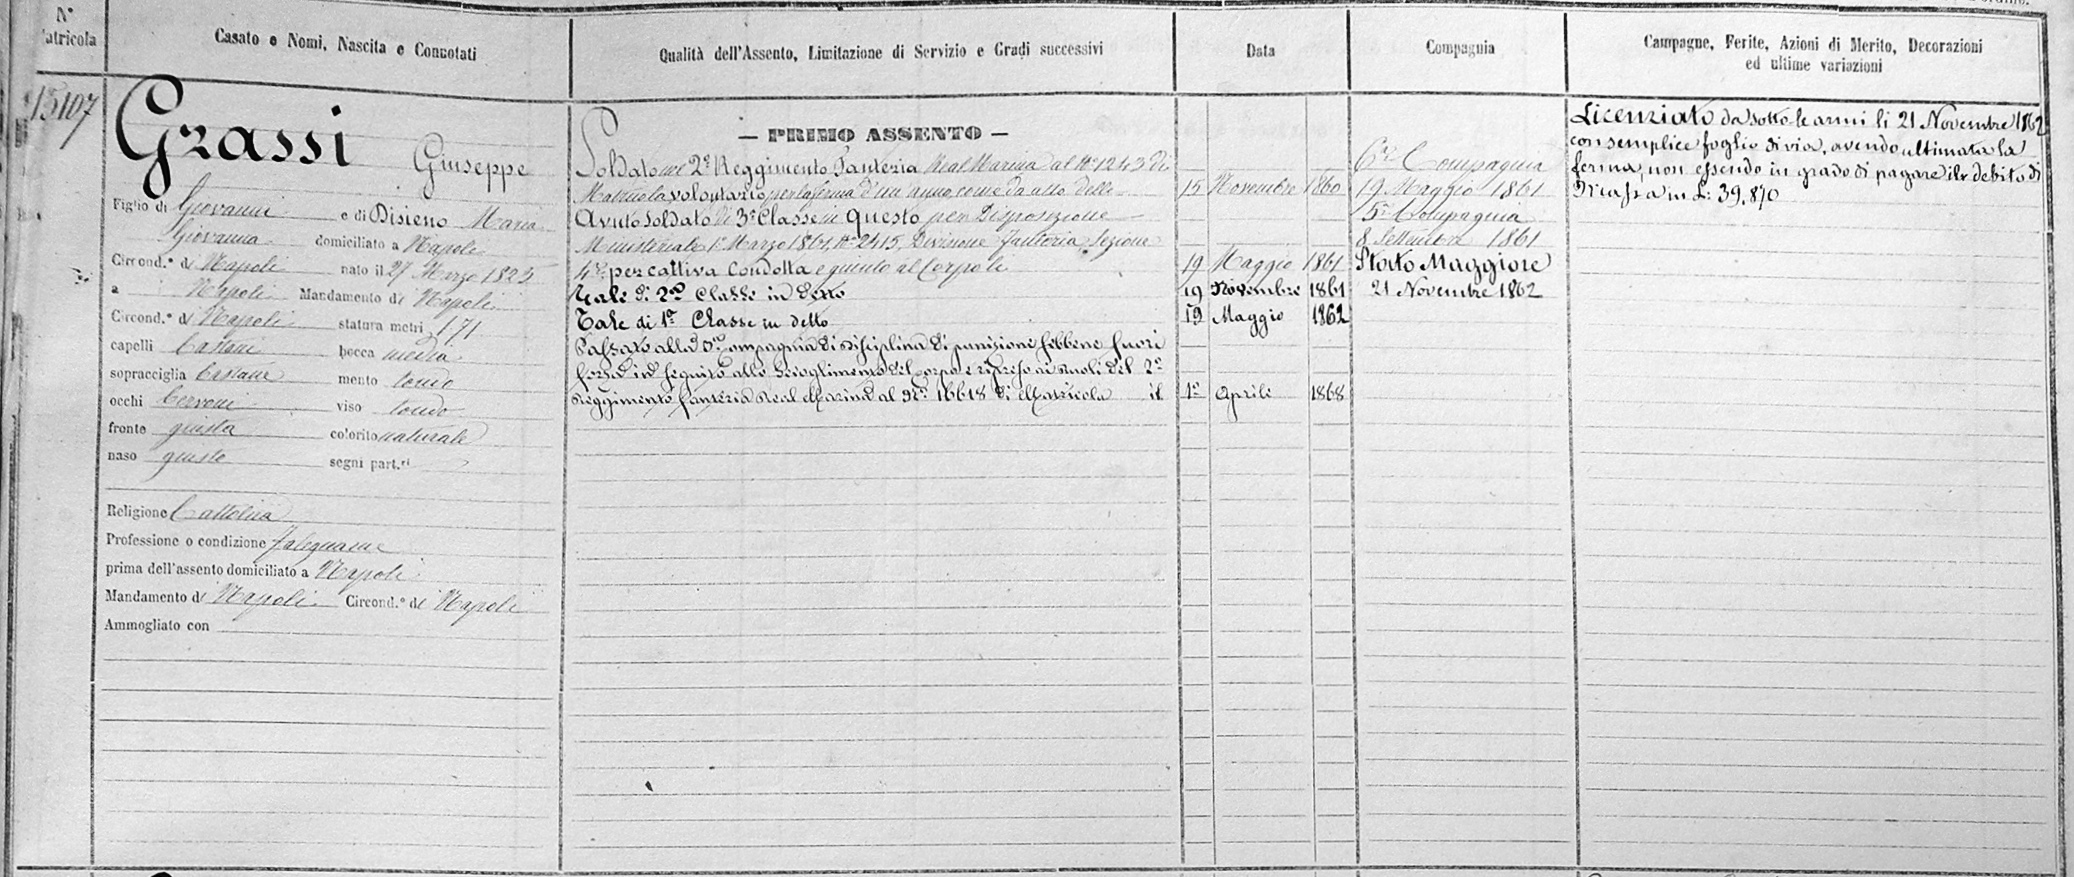 N°
atricola
Casato e Nomi, Nascita e Connotati
Qualità dell'Assento, Limitazione di Servizio e Gradi successivi
Data
Compagnia
Campagne, Ferite, Azioni di Merito, Decorazioni
ed ultime variazioni
15107
Grassi
Giuseppe
Figlio di Giovanni e di Disieno Maria
Giovanna domiciliato a Napoli
Circond.° di Napoli nato il 27 Marzo 1823
a Napoli Mandamento di Napoli
Circond.° di Napoli statura metri 1,71
capelli Castani bocca media
sopracciglia Castane mento tondo
occhi Cervoni viso tondo
fronte giusta colorito naturale
naso giusto segni part.ri
Religione Cattolica
Professione o condizione Falegname
prima dell'assento domiciliato a Napoli
Mandamento di Napoli Circond.° di Napoli
Ammogliato con
— PRIMO ASSENTO —
Soldato nel 2° Reggimento Fanteria Real Marina al N° 1243 di
Matricola volontario per la ferma d'un anno come da atto delle 15 Novembre 1860
Avuto Soldato di 3ª Classe in questo per Disposizione
Ministeriale 1° Marzo 1861, N° 2415, Divisione Fanteria, Sezione
4ª per cattiva Condotta e giunto al Corpo li 19 Maggio 1861
Tale di 2ª Classe in detto 19 Novembre 1861
Tale di 1ª Classe in detto 19 Maggio 1862
Passato alla Compagnia di Disciplina di punizione sebbene fuori
forza in seguito allo scioglimento del Corpo e ripreso ai Ruoli del 2°
Reggimento fanteria Real Marina al N° 16618 di Matricola il 1° Aprile 1868
6ª Compagnia
19 Maggio 1861
5ª Compagnia
8 Settembre 1861
Stato Maggiore
21 Novembre 1862
Licenziato da sotto le armi li 21 Novembre 1862
con semplice foglio di via, avendo ultimata la
ferma, non essendo in grado di pagare il debito di
Massa in L. 39,870